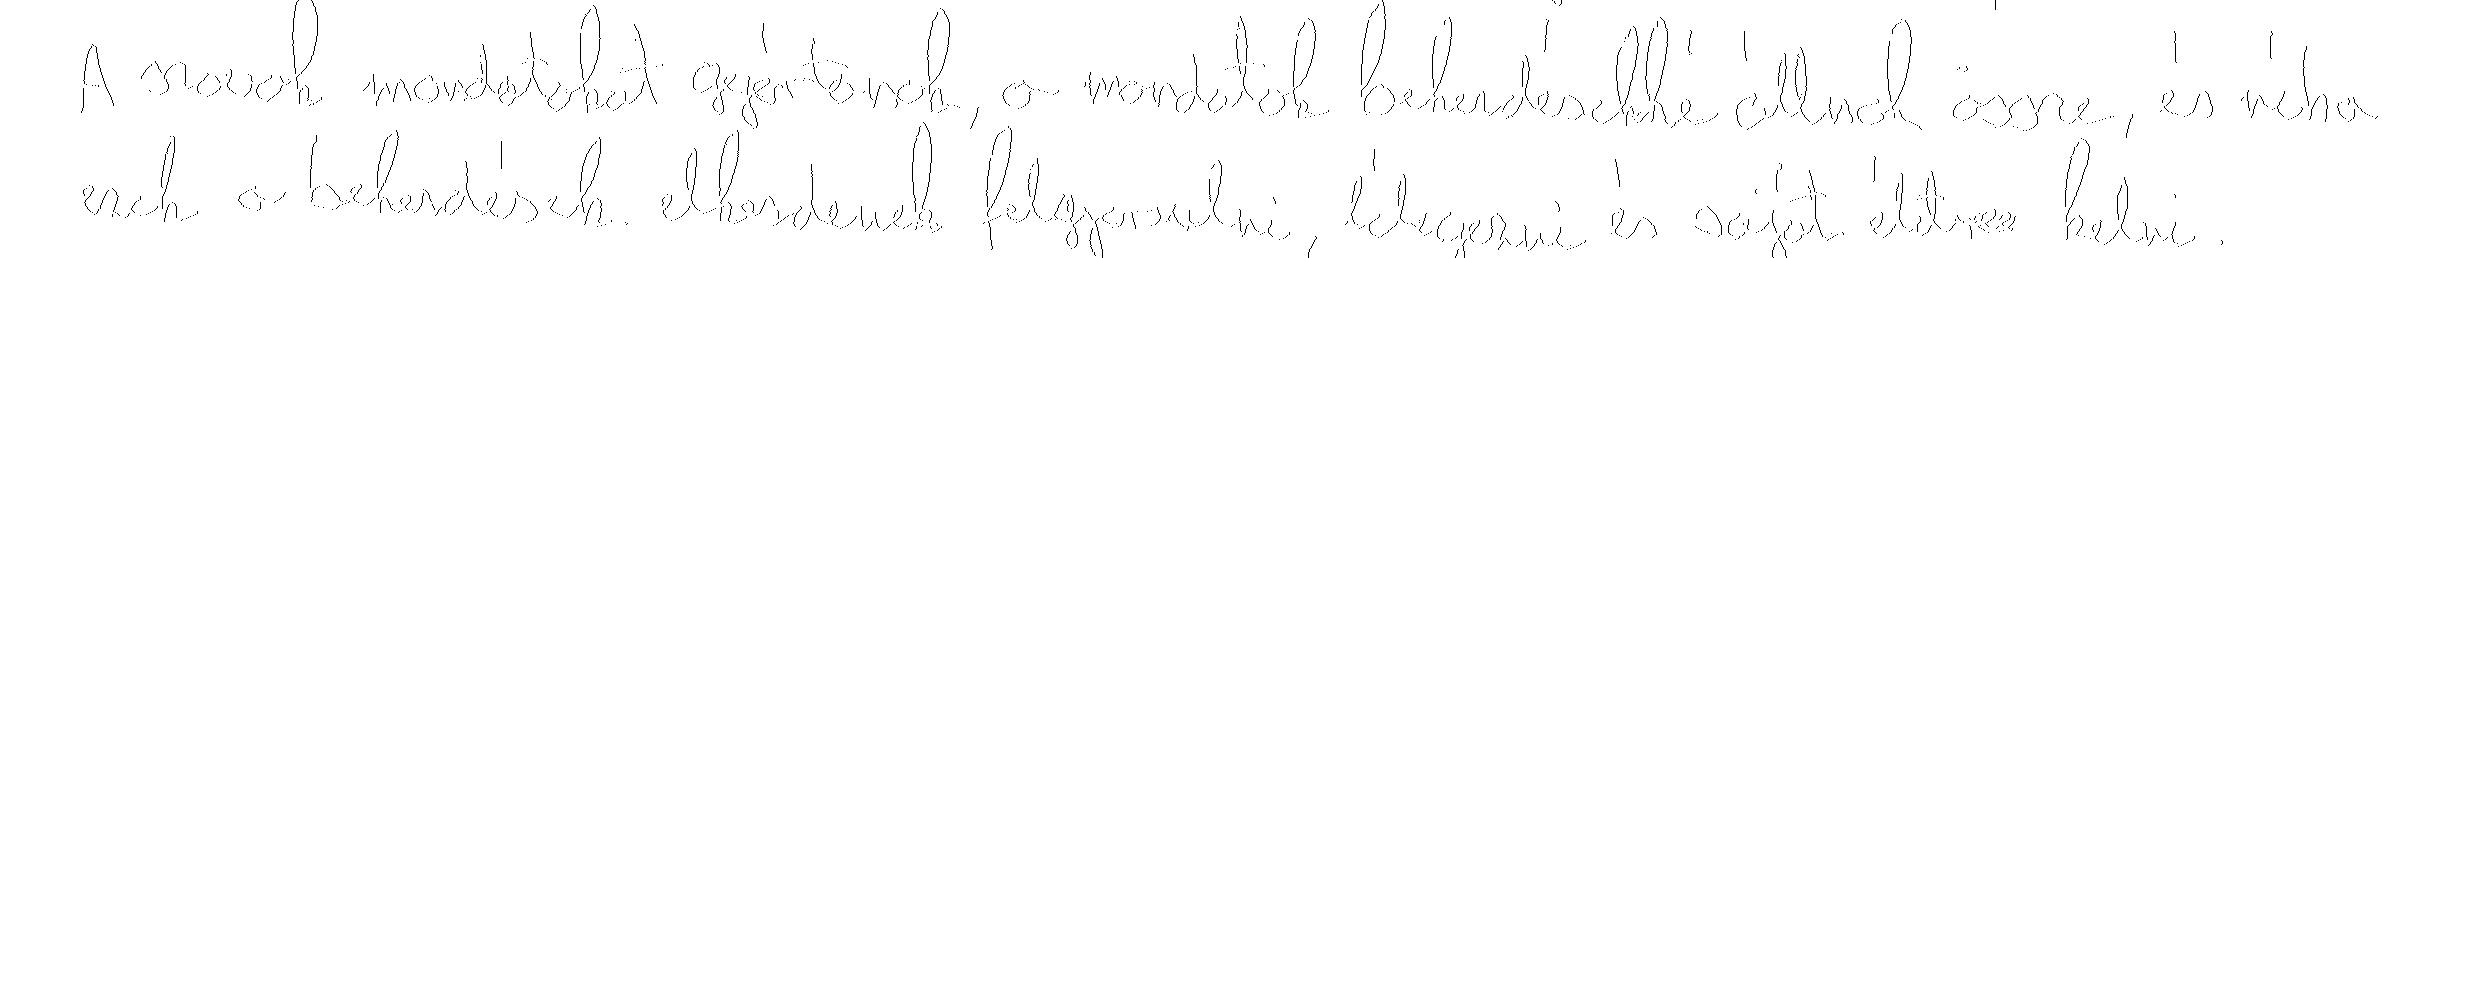 A szavak mondatokat gyártanak, a mondatok bekezdésekké állnak össze, és néha
ezek a bekezdések elkezdenek felgyorsulni, lélegezni és saját életre kelni.